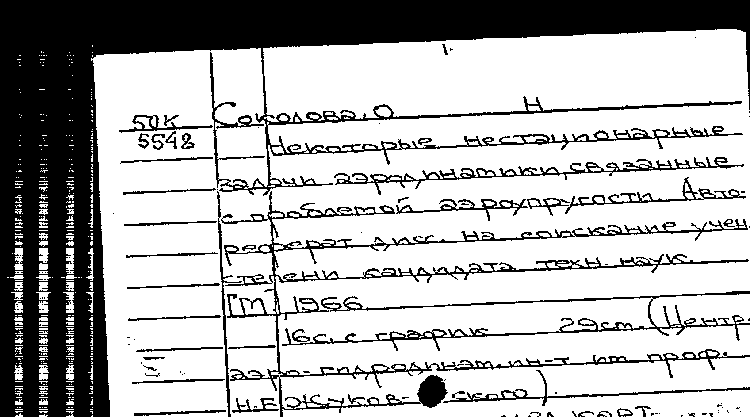 50К Соколова, О Н
5542 Некоторые нестационарные
задачи аэродинамики, связанные
с проблемой аэроупругости. Авто-
реферат дисс. на соискание учен.
степени кандидата техн. наук.
[М], 1966
16с. с график 29см. (Центр.
аэро-гидродинам. ин-т им проф.
Н.Е Жуков-ского).